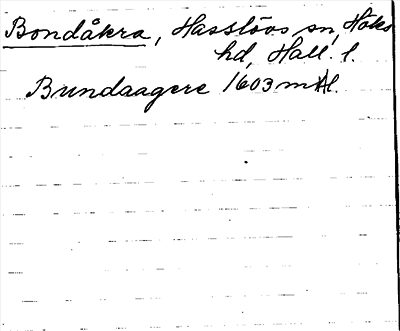 Bondåkra, Hasslövs sn, Höks
hd, Hall. l.
Bundaagere 1603 mAl.